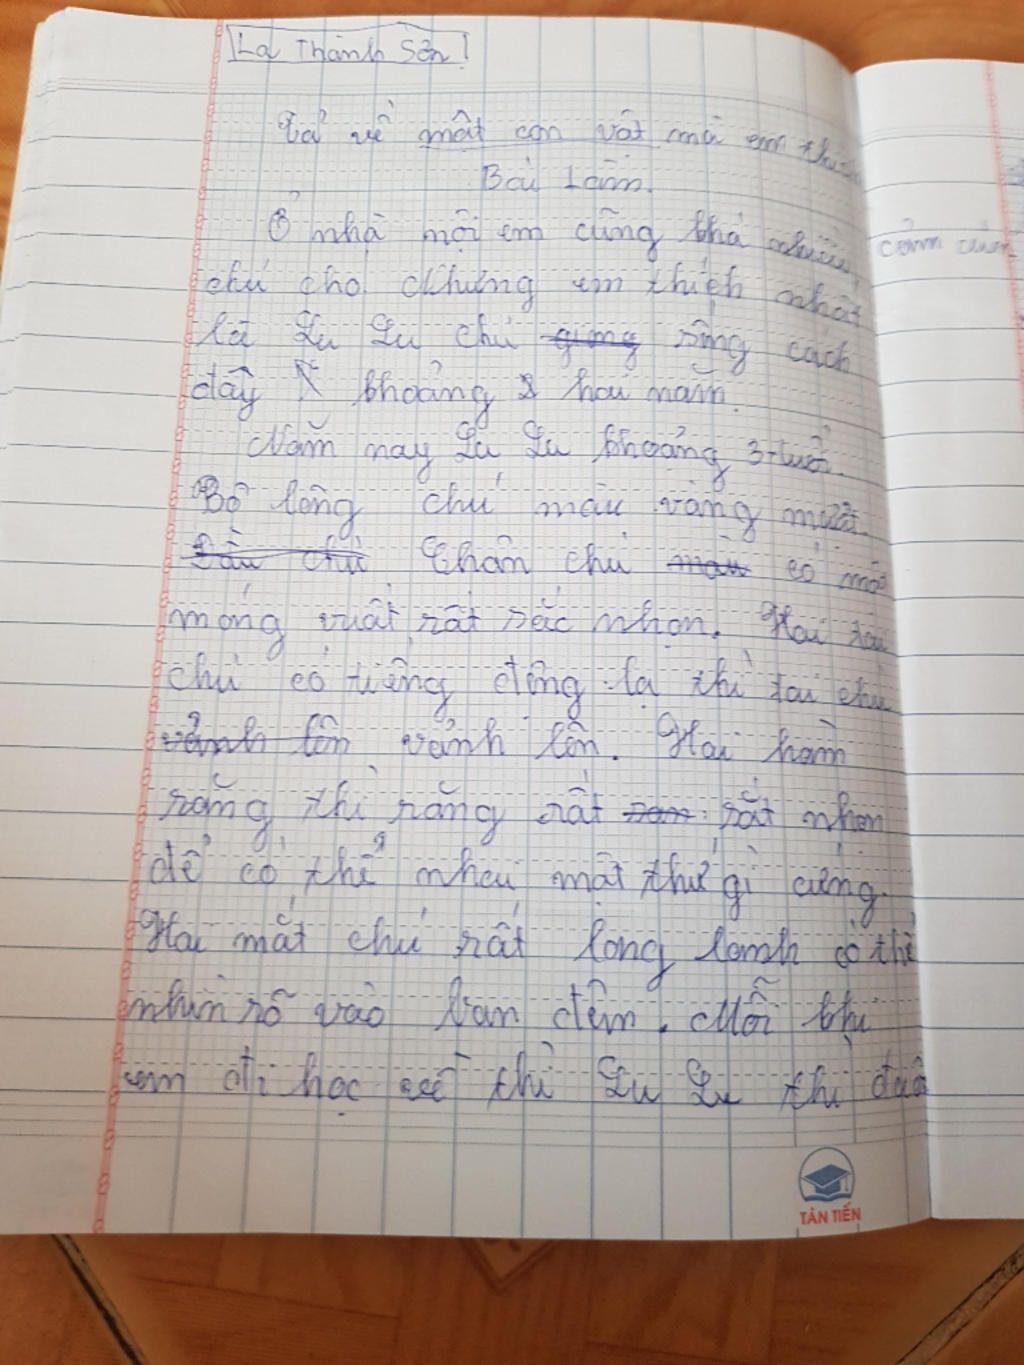 La Thành Sơn
Tả về một con vật mà em thích
Bài Làm.
Ở nhà nội em cũng khá nhiều
chú chó. Nhưng em thích nhất
là Lu Lu chú giống rộng cách
đây khoảng hai năm.
Năm nay Lu Lu khoảng 3 tuổi.
Bộ lông chú màu vàng mượt.
Đầu chú Chân chú màu có một
móng vuốt rất rắc nhọn. Hai tai
chú có tiếng động lạ thì tai chú
vảnh lên vảnh lên. Hai hàm
răng thì răng rất rất nhọn
để có thể nhai một thứ gì cứng.
Hai mắt chú rất long lanh có thể
nhìn rõ vào ban đêm. Mỗi khi
em đi học về thì Lu Lu thì đuôi
TÂN TIẾN